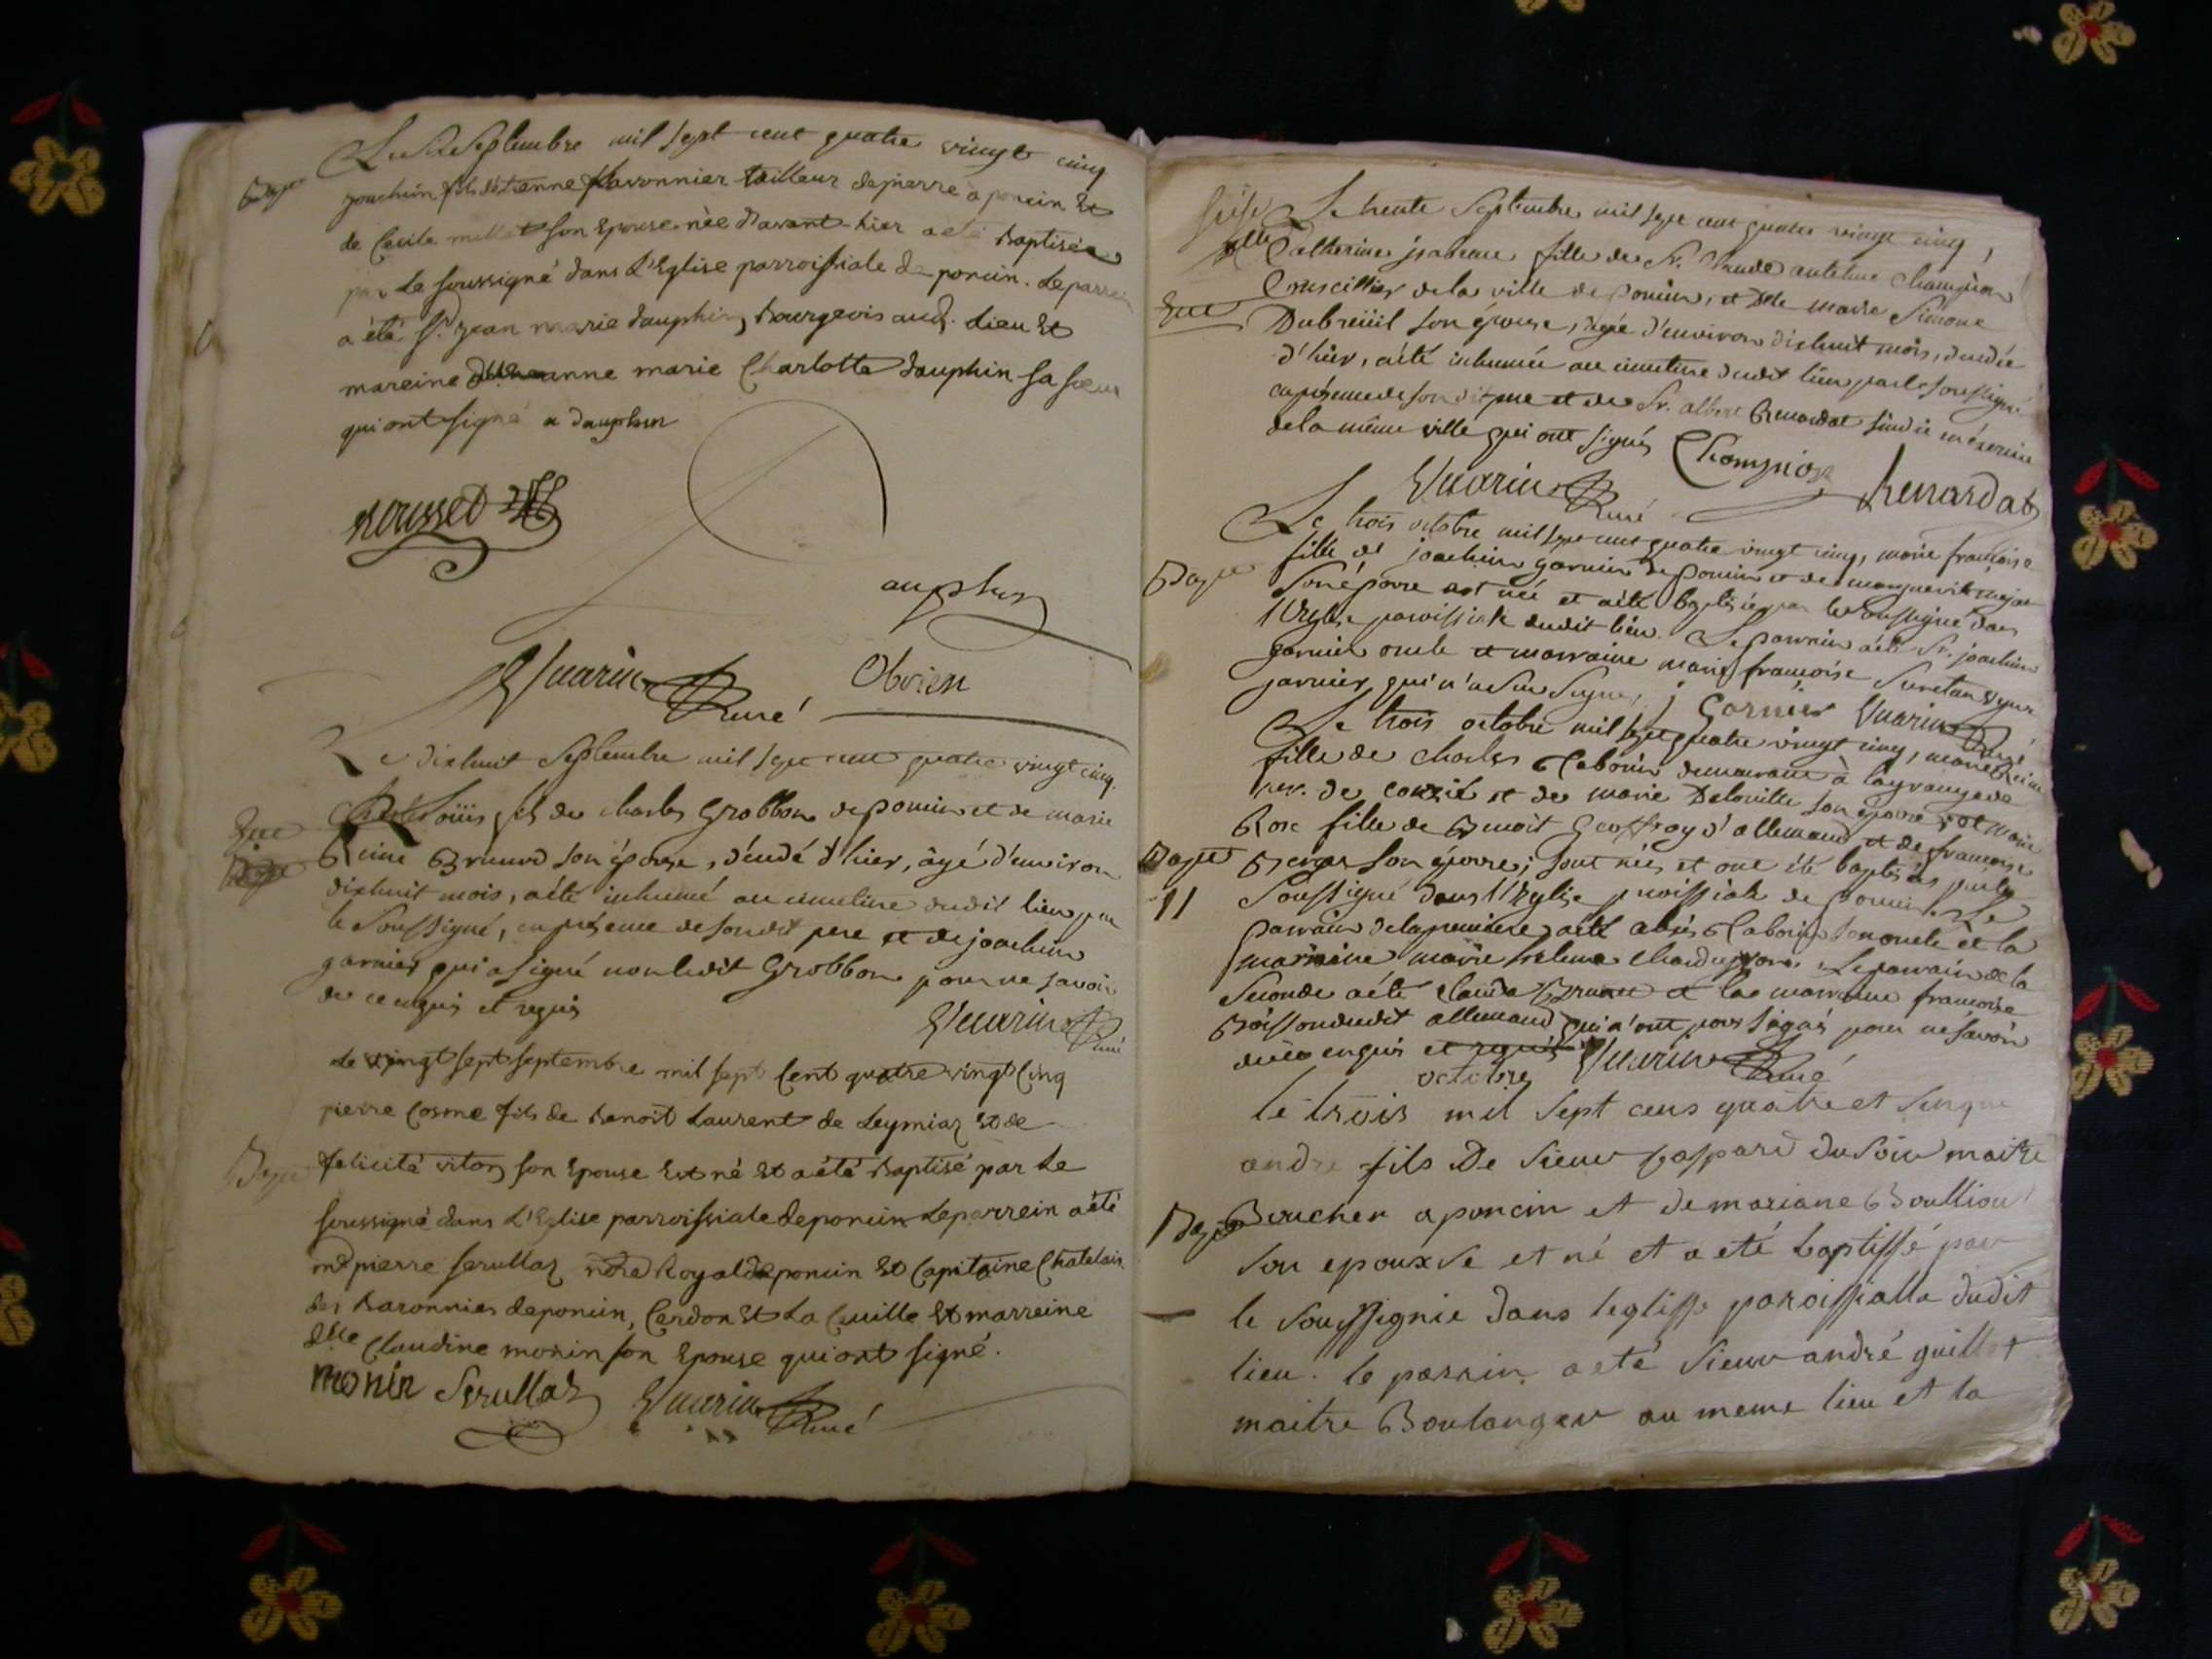 Septembre mil sept cent quatre vingt cinq
Bapt
joachim fils détienne flavonnier tailleur depierre à poncin Et
de Cecile millet son Epouse née D'avant-hier a eté Baptisée
par le soussigné dans L'Eglise parroissiale de poncin. Le parrein
a été Sr. jean marie dauphin, Bourgeois aud. Lieu Et
mareine anne marie Charlotte dauphin sa sœur
qui ont signé a dauphin
Rousset
auphin
Guarin Curé
Obrien
Le dixhuit Septembre mil sept cent quatre vingt cinq.
Loüis fils de Charles Grobbon de poncin et de marie
Reine Brunod son épouse, décédé d'hier, âgé d'environ
dixhuit mois, a été inhumé au cimetiere dudit lieu par
le Soussigné, en présence desondit pere et de joachim
garnier qui a signé non ledit Grobbon pour ne savoir
de ce enquis et requis
Guarin Curé
Le vingt sept septembre mil sept Cent quatre vingt Cinq
pierre Cosme fils de Benoit Laurent de Leymiaz Et de
Bapt
felicité viton son Epouse Est né Et a été Baptisé par Le
soussigné dans L'Eglise parroissiale deponcin Leparrein a été
me pierre serullaz nore Royal deponcin Et Capitaine Chatelain
des Baronnies deponcin, Cerdon Et La Cueille Et marreine
dlle Claudine monin son Epouse qui ont signé.
monin Serullaz Guarin Curé
Le trente Septembre mil sept cent quatre vingt cinq,
Catherine jsabeau fille de Sr. Claude antelme Champion
Conseillier de la ville de poncin, et Dlle marie Simone
Dubreüil son épouse, agée d'environ dixhuit mois, decedée
d'hier, a été inhumée au cimetiere dudit lieu par le soussigné
en présence de son dit pere et de Sr. albert Renardat sindic en exercice
de la même ville qui ont signés Champion
Guarin Curé
Renardat
Le trois octobre mil sept cent quatre vingt cinq, marie françoise
Bapt
fille de joachim garnier de poncin et de marguerite
son épouse est née et a été baptisée par le soussigné dans
l'Eglise paroissiale dudit lieu. Le parrain a été Sr. joachim
garnier oncle et marraine marie françoise
garnier, qui n'a su signer, j Garnier Guarin Curé
Le trois octobre mil sept quatre vingt cinq, marie
fille de Charles Caborin demeurant à la grange de
de conzié et de marie Deloville son épouse, et marie
Rose fille de Benoit Geoffray d'allemand et de françoise
Bapt
son épouse; sont nées et ont été baptisées par le
11
Soussigné dans l'Eglise paroissiale de poncin. Le
parrain de la premiere a été Caborin son oncle et la
marraine marie helene Le parrain de la
seconde a été Claude Brunet et la marraine françoise
dudit allemand qui n'ont pas signés pour ne savoir
de ce enquis et requis Guarin Curé
octobre
le trois mil sept cens quatre et
andre fils De sieur gaspard du Soin maitre
Bapt
Boucher a poncin et de mariane Boullioud
son epouxse et né et a eté baptissé par
le soussignie dans leglisse paroissialle dudit
lieu. le parrin a eté sieur andré guillot
maitre Boulanger au meme lieu et la